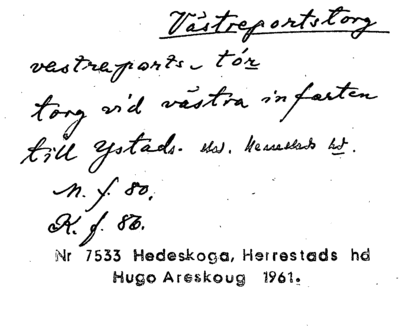 Västreportstorg
vestreports- tór
torg vid västra infarten
till Ystads. std. Herrestads hd.
M. f. 80.
K. f. 86.
Nr 7533 Hedeskoga, Herrestads hd
Hugo Areskoug 1961.